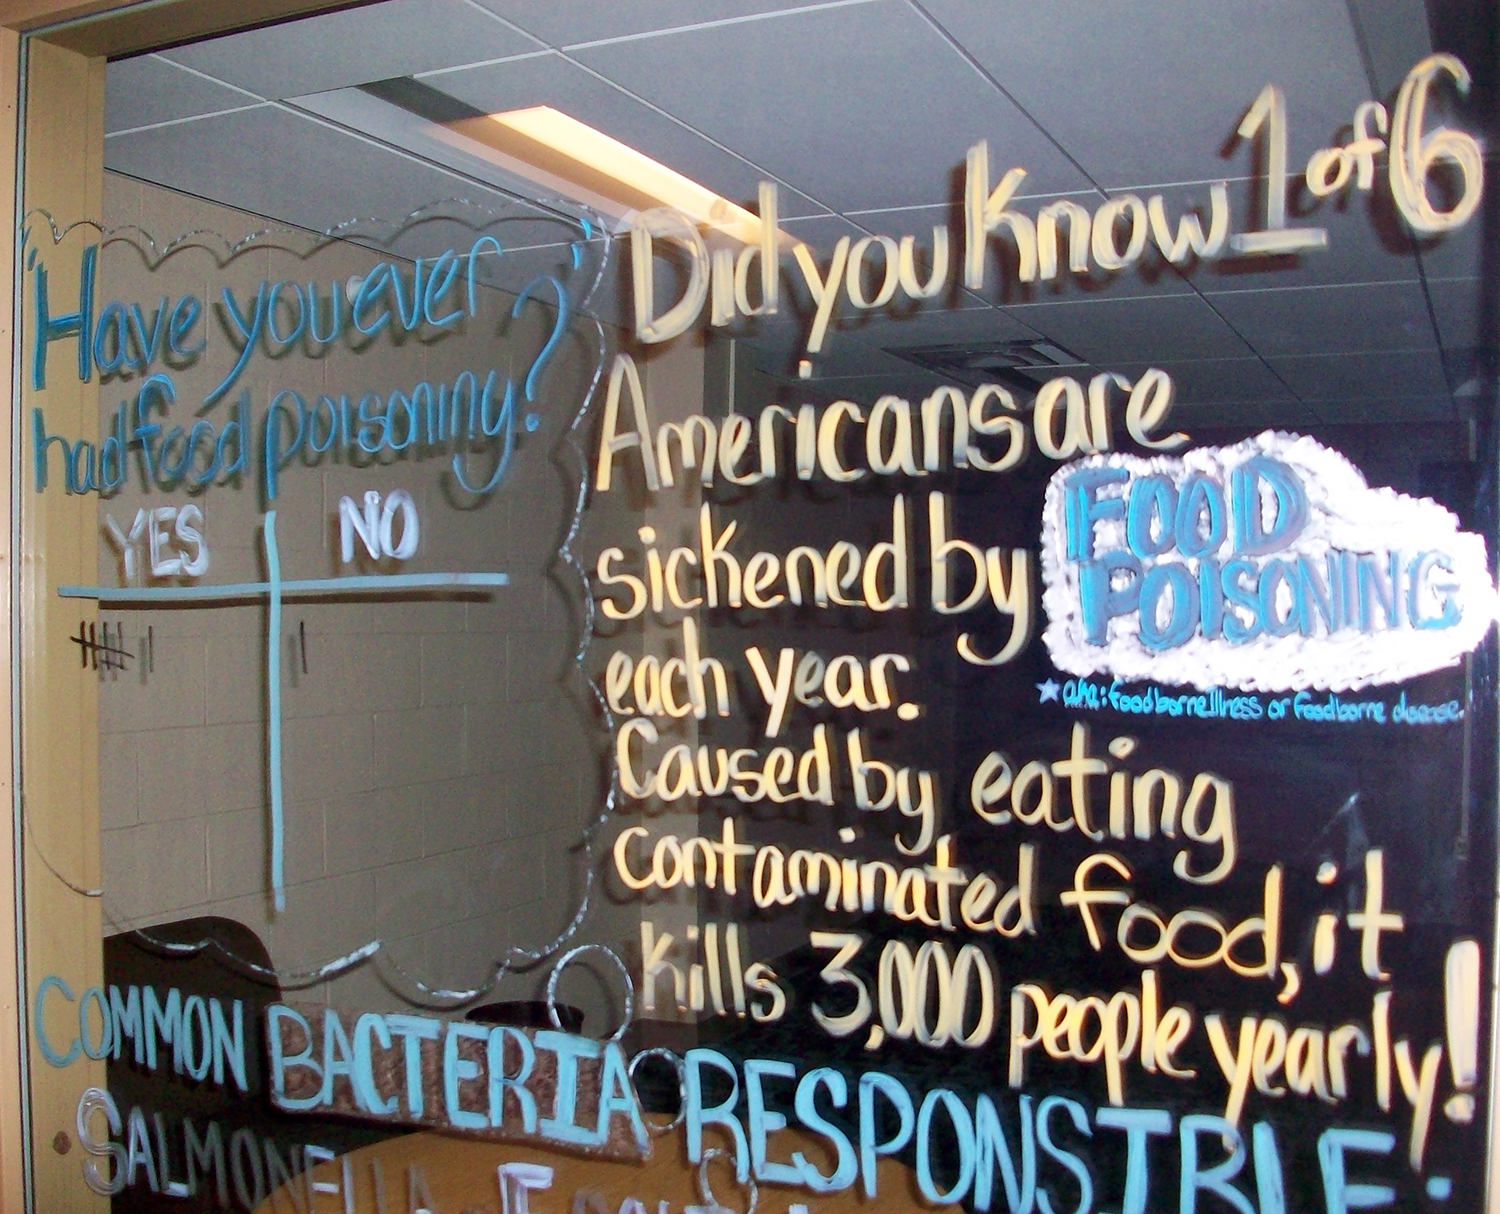 "Have you ever
had food poisoning?"
YES NO
Did you Know 1 of 6
Americans are
sickened by FOOD
POISONING
each year.
★ aka: foodborne illness or foodborne disease.
Caused by eating
contaminated food, it
kills 3,000 people yearly!
COMMON BACTERIA RESPONSIBLE:
SALMONELLA